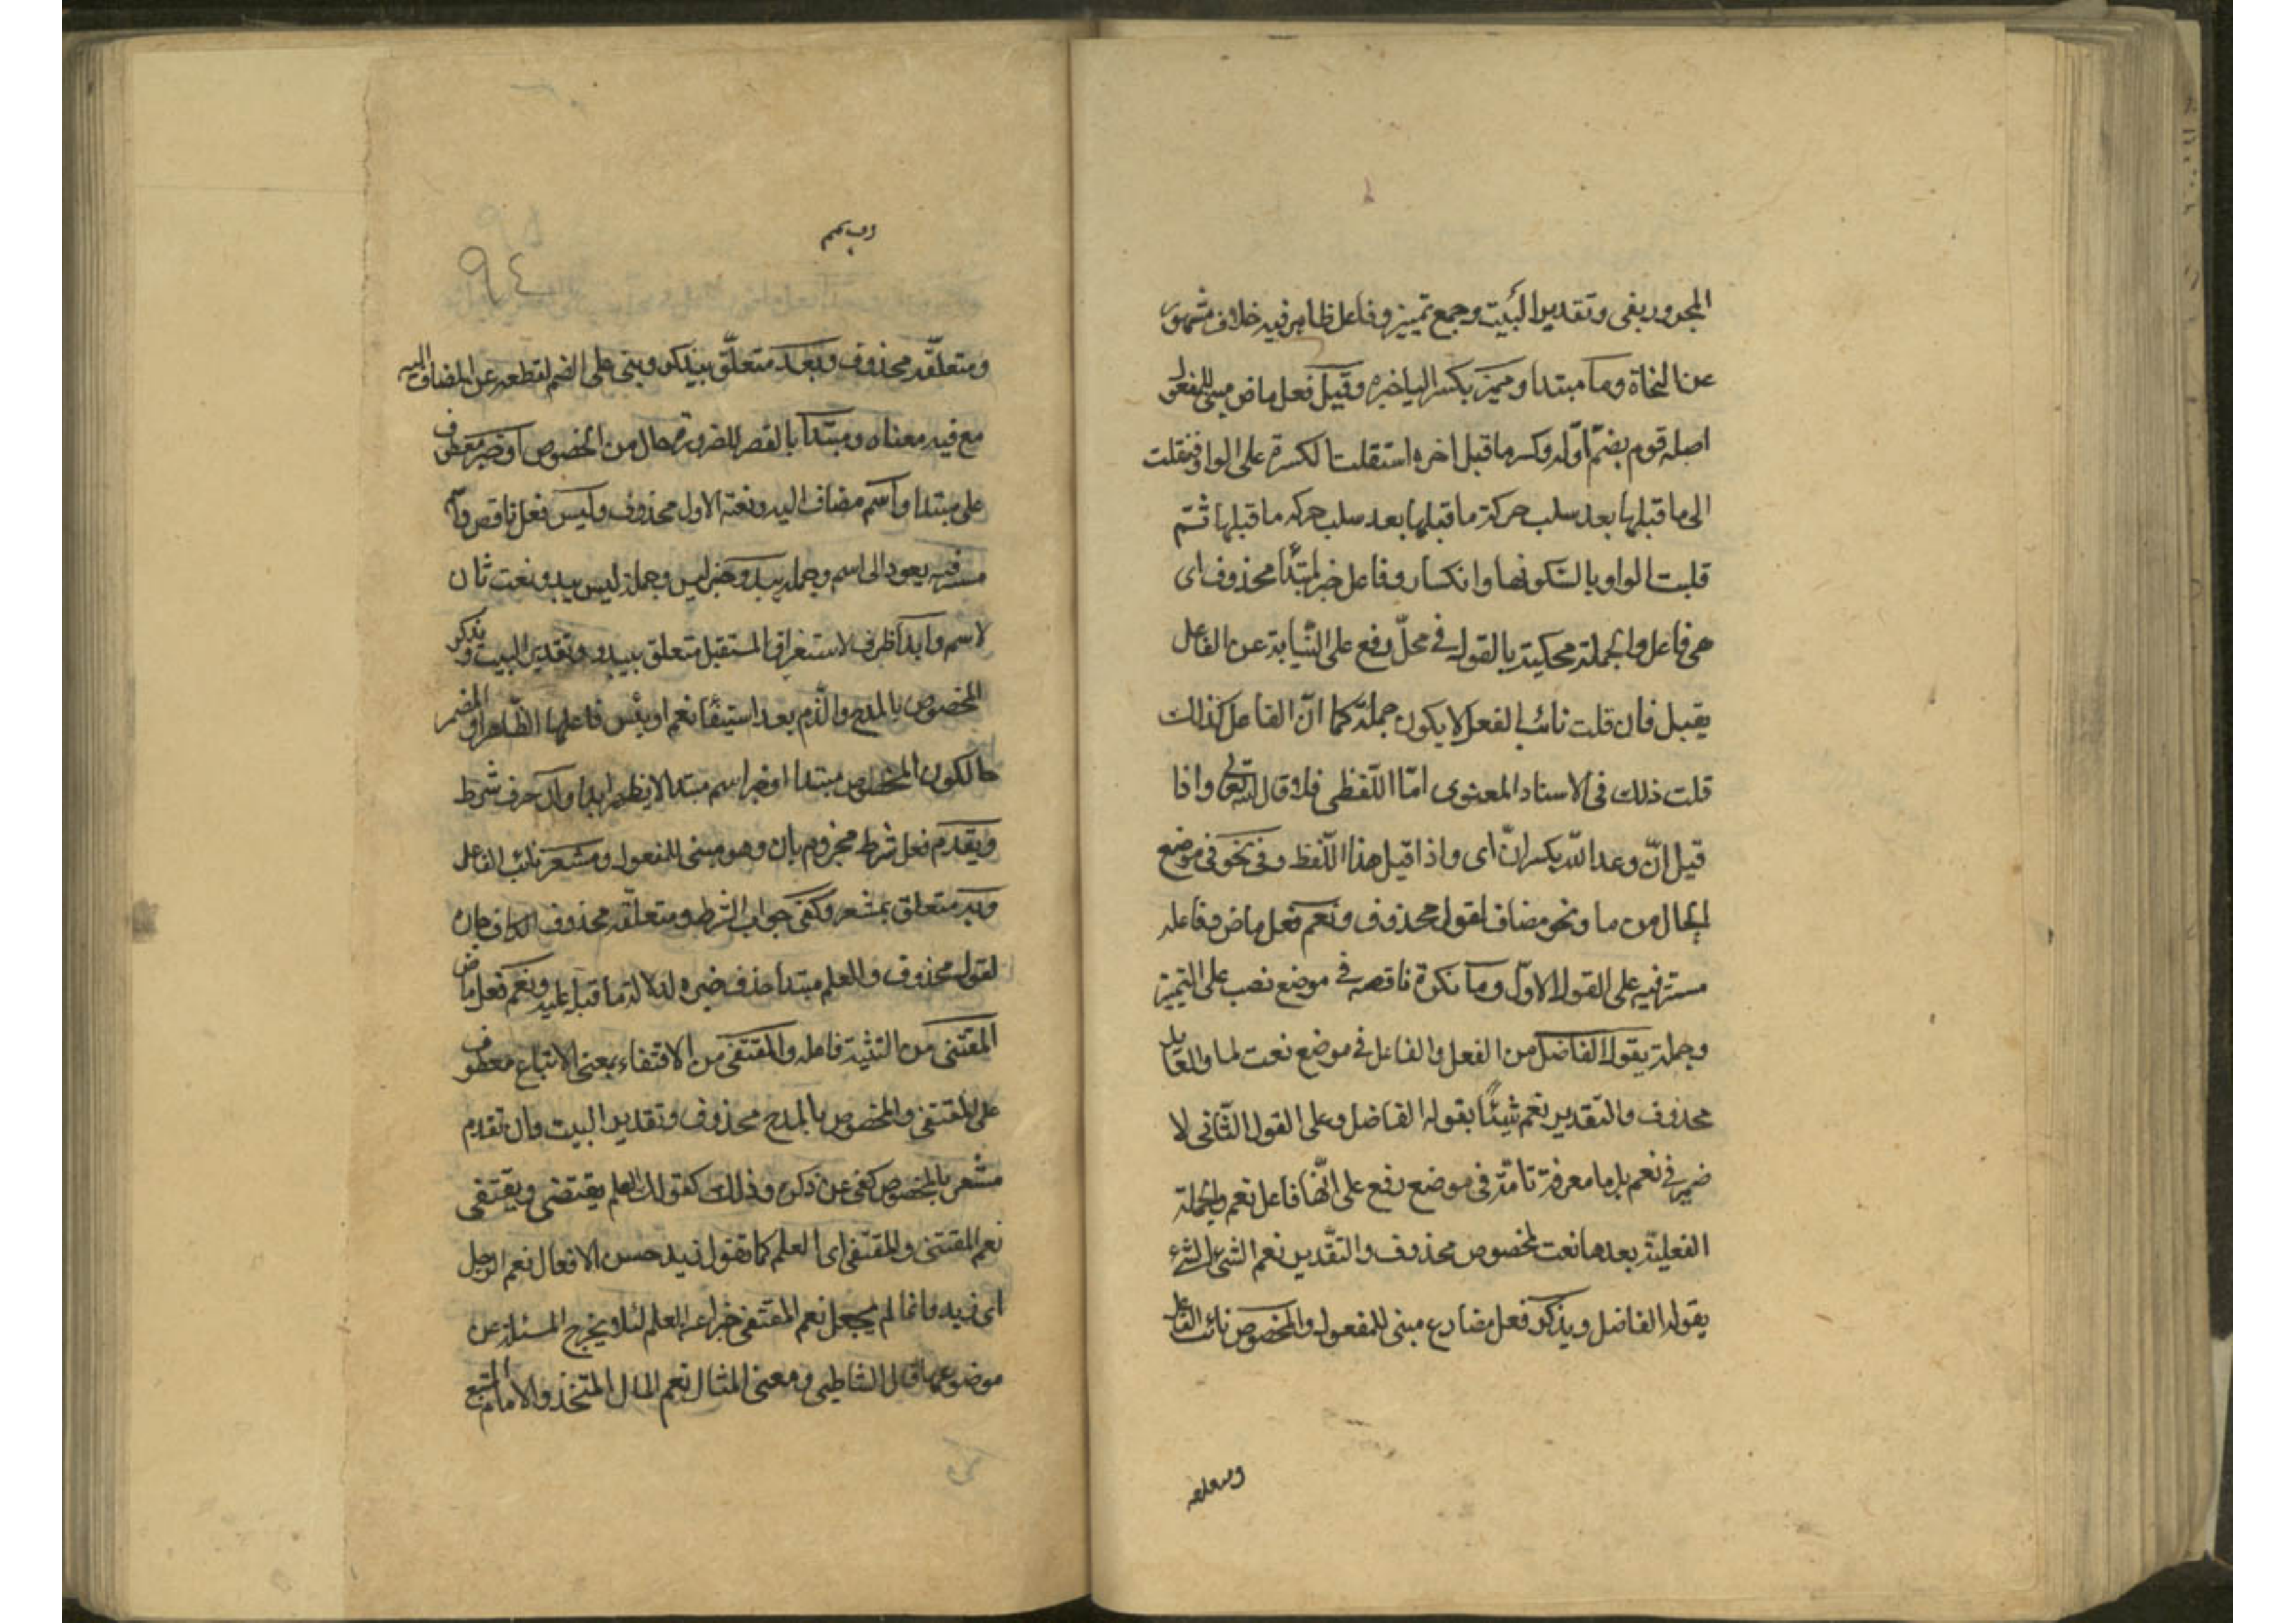 المجرور بفى وتقدير البيت وجمع تمييز وفاعل ظاهر فيه خلاف مشهور
عن النحاة وما مبتدا ومميز بكسر اليا خبره وقيل فعل ماض مبنى للمفعول
اصله قوم بضم اوله وكسر ما قبل اخره استقلت الكسرة على الواو فنقلت
الى ما قبلها بعد سلب حركة ما قبلها بعد سلب حركه ما قبلها ثم
قلبت الواو يا لسكونها وانكسار وفاعل خبر لمبتدأ محذوف اى
هى فاعل والجملة محكية بالقول فى محل رفع على النيابة عن الفاعل
بقيل فان قلت نائب الفعل لا يكون جملة كما ان الفاعل كذالك
قلت ذلك فى الاسناد المعنوى امّا اللفظى فلا قال الله تعالى واذا
قيل انّ وعد الله بكسر انّ اى واذا قيل هذا اللفظ وفى نحو فى موضع
الحال من ما ونحو مضاف لقول محذوف ونعم فعل ماض وفاعله
مستتر فيه على القول الاول وما نكرة ناقصه فى موضع نصب على التمييز
وجملة يقول الفاضل من الفعل والفاعل فى موضع نعت لما والعايد
محذوف والتقدير نعم شيئًا يقوله الفاضل وعلى القول الثانى لا
ضمير فى نعم بل ما معرفة تامّة فى موضع رفع على انّها فاعل نعم والجملة
الفعليّة بعدها نعت لمخصوص محذوف والتقدير نعم الشئ الشئ
يقوله الفاضل ويذكر فعل مضارع مبنى للمفعول والمخصوص نائب الفاعل
ومتعلقه
٩٤
ومتعلّقه محذوف وبعد متعلّق بيذكر وبنى على الضم لقطعه عن المضاف اليه
مع فيه معناه ومبتدا بالقصر للضرورة حال من المخصوص او خبر معطوف
على مبتدا واسم مضاف اليه ونعته الاول محذوف وليس فعل ناقص و
مستتر فيه يعود الى اسم وجملة يبدو خبر ليس وجملة ليس يبدو نعت ثان
لاسم وابدا ظرف لاستغراق المستقبل متعلق بيبدو وتقدير البيت ويذكر
المخصوص بالمدح والذم بعد استيفا نعم او بئس فاعلها الظاهر او المضمر
حالكون المخصوص مبتدا او خبر اسم مبتدا لا يظهر ابدا وان حرف شرط
ويقدم فعل شرط مجزوم بان وهو مبنى للمفعول ومشعر نائب الفاعل
وبه متعلق بمشعر وكفى جواب الشرط ومتعلّقه محذوف الكاف جارة
لقول محذوف والعلم مبتدا حذف خبره لدلالة ما قبل عليه ونعم فعل ماض
المقتنى من فاعله والمقتفى من الاقتفاء بمعنى الاتباع معطوف
على المقتنى والمخصوص بالمدح محذوف وتقدير البيت وان تقدم
مشعر بالمخصوص كفى عن ذكره وذلك كقولك العلم يقتضى ويقتفى
نعم المقتنى والمقتفى اى العلم كما تقول زيد حسن الافعال نعم الرجل
اى زيد وانما لم يجعل نعم المقتفى خبرا عن العلم لئلا يخرج المسئلة عن
موضوعها قال الشاطبى ومعنى المثال نعم المال المتخذ والامام المتبع